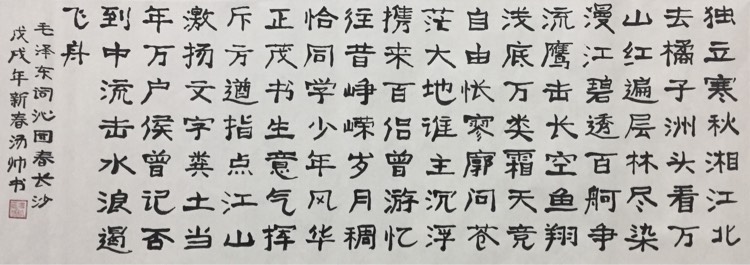 独立寒秋湘江北
去橘子洲头看万
山红遍层林尽染
漫江碧透百舸争
流鹰击长空鱼翔
浅底万类霜天竞
自由怅寥廓问苍
茫大地谁主沉浮
携来百侣曾游忆
往昔峥嵘岁月稠
恰同学少年风华
正茂书生意气挥
斥方遒指点江山
激扬文字粪土当
年万户侯曾记否
到中流击水浪遏
飞舟
毛泽东词沁园春长沙
戊戌年新春汤帅书